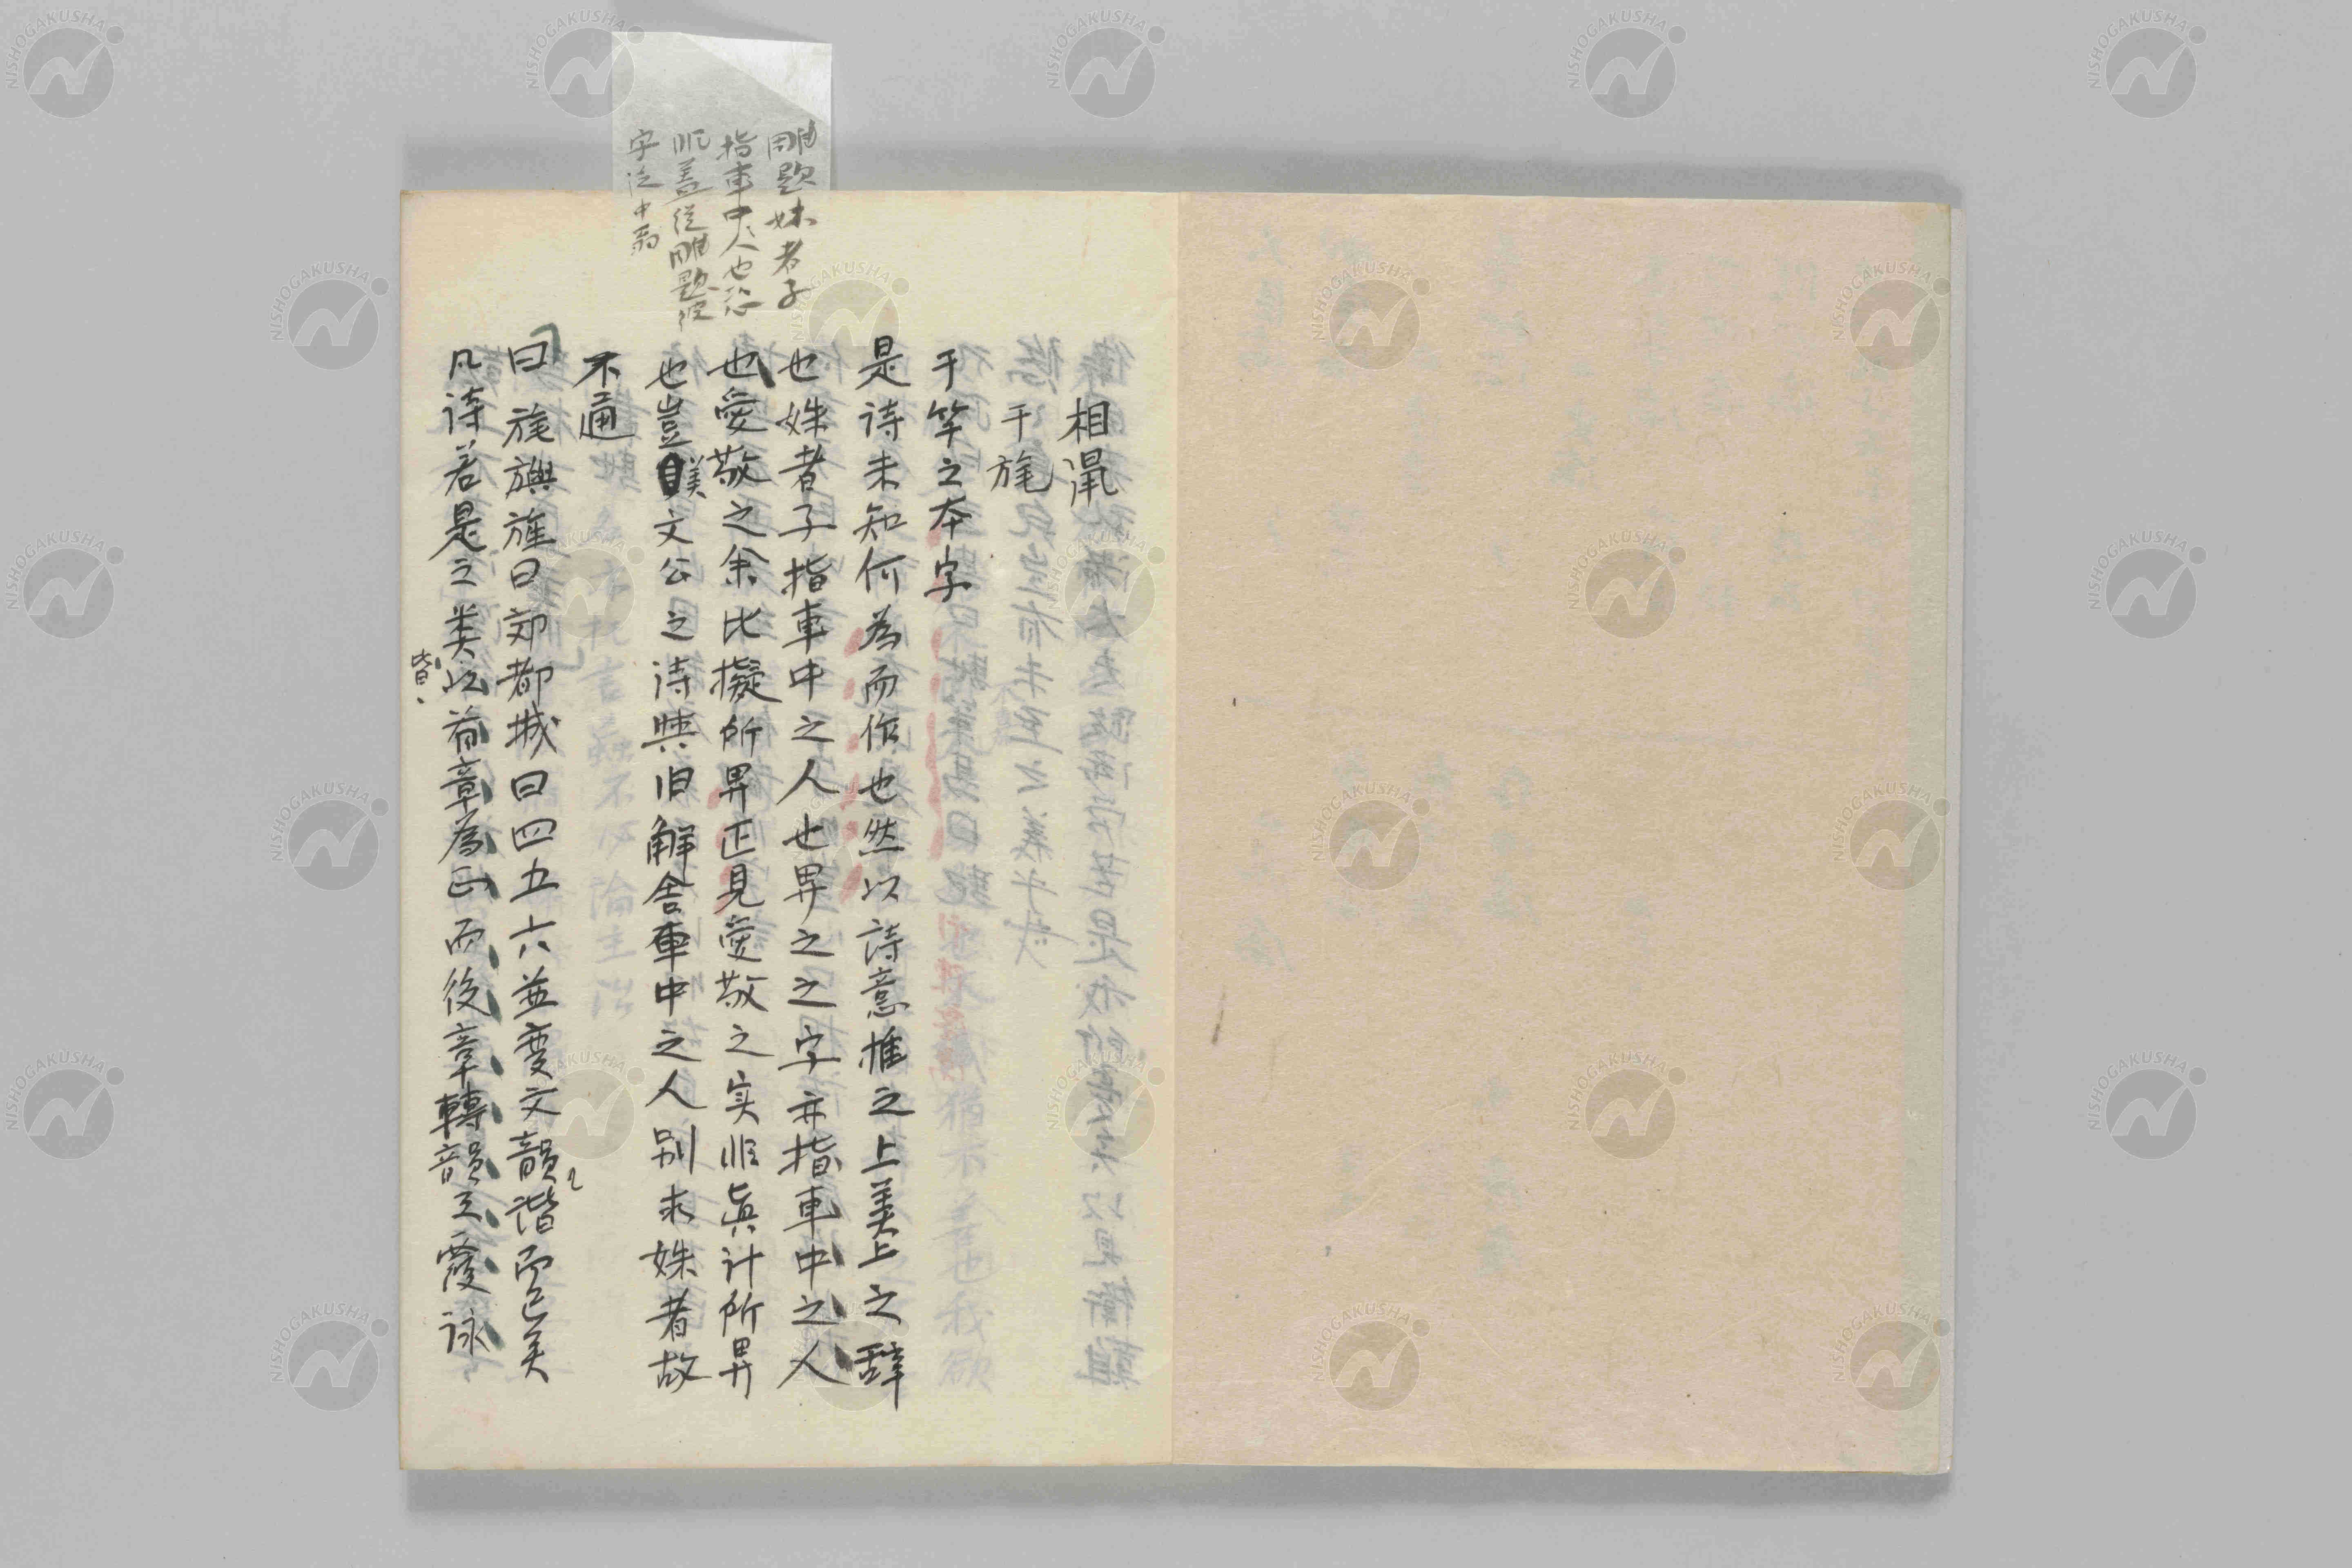 相鼠
干旄
干竿之本字
是诗未知何為而作也然以詩意推之上美上之辞
也姝者子指車中之人也畀之之字亦指車中之人
也愛敬之余比擬所畀正見愛敬之实非眞計所畀
也豈美文公之诗與旧解舍車中之人别求姝者故
不通
曰旄旟旌曰郊都城曰四五六並変文韻谐而已矣
凡诗若是之类以首章為正而後章轉韻互覆詠
皆
雕題姝者子
指車中人也
非蓋從雕題
字
NISHOGAKUSHA